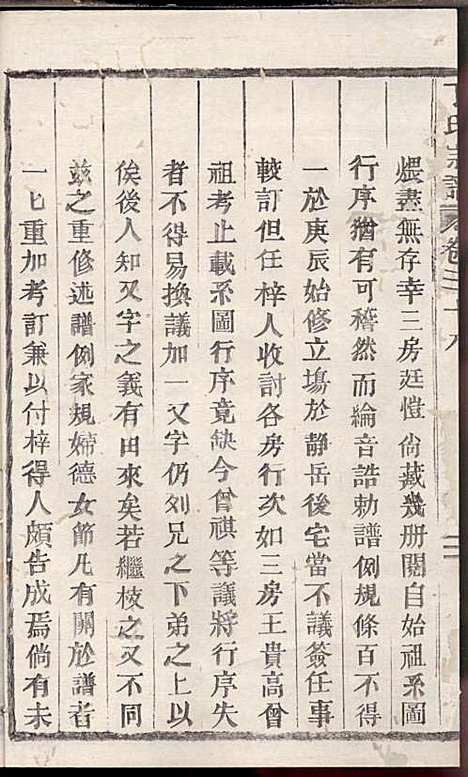 丁氏宗譜 卷二十八
煨盡無存幸三房廷愷尙藏幾册關自始祖系圖
行序猶有可稽然而綸音誥勅譜例規條百不得
一於庚辰始修立塲於靜岳後宅當不議簽任事
較訂但任梓人收討各房行次如三房王貴高曾
祖考止載系圖行序竟缺今曾祺等議將行序失
者不得易換議加一又字仍列兄之下弟之上以
俟後人知又字之義有由來矣若繼枝之又不同
茲之重修述譜例家規婦德女節凡有關於譜者
一一重加考訂兼以付梓得人頗告成焉倘有未